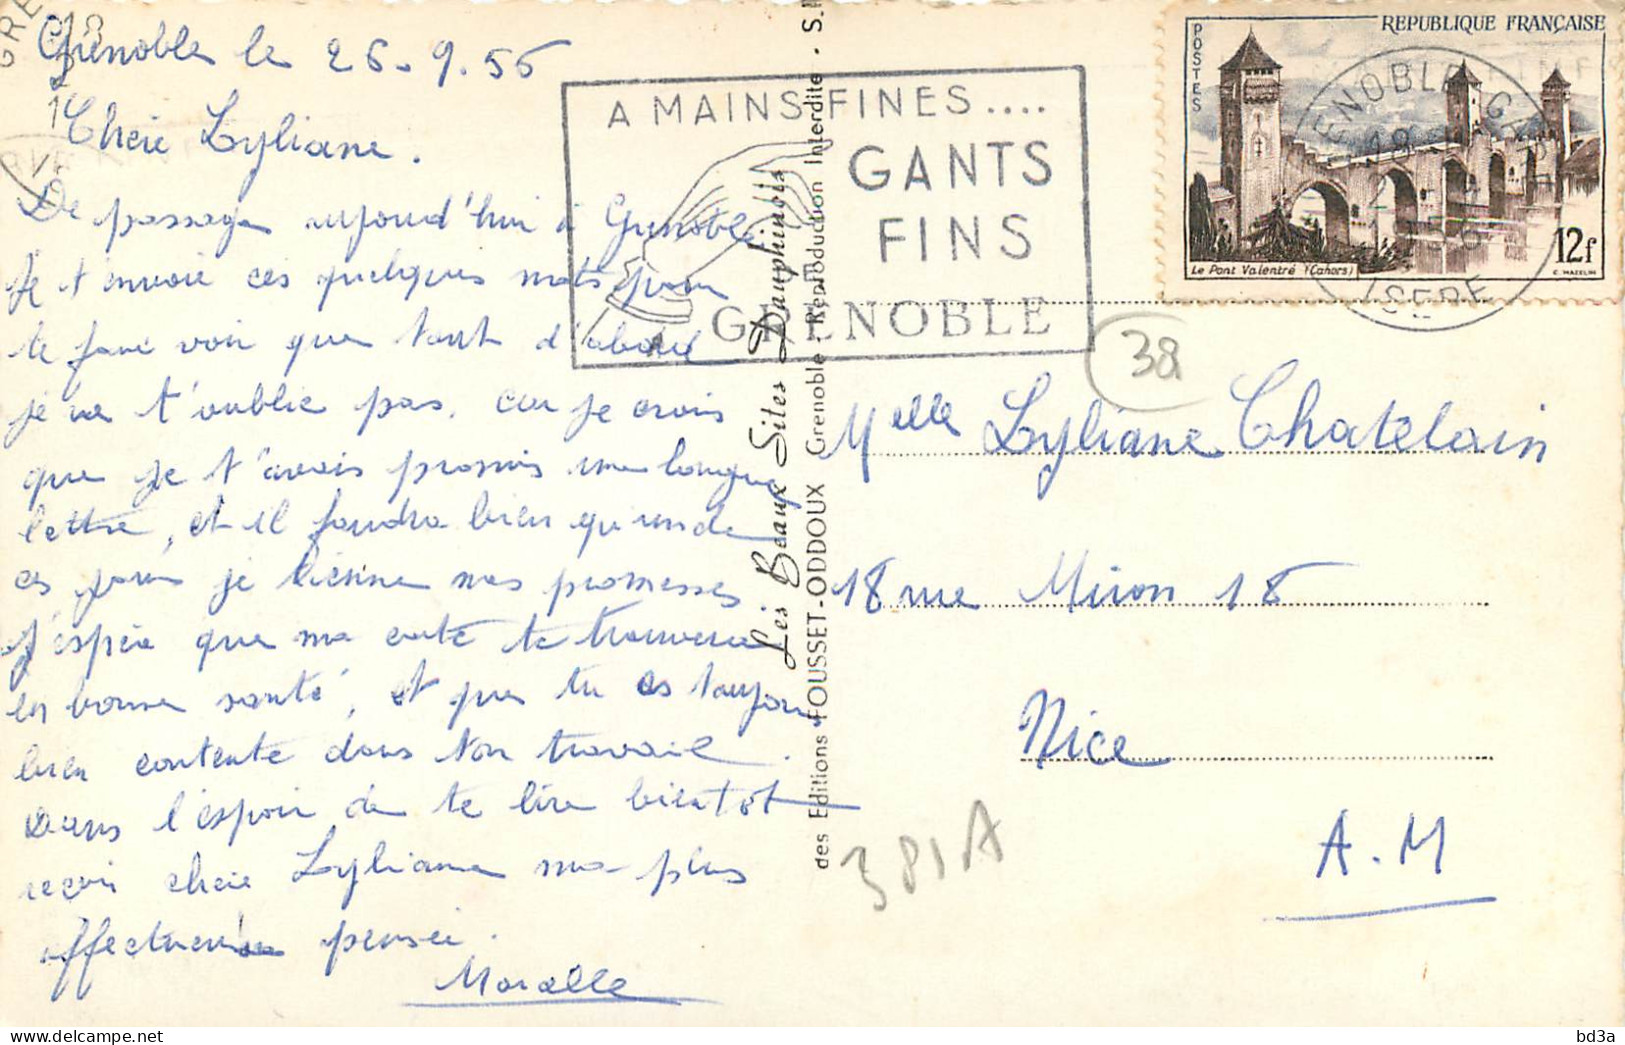 Grenoble le 26-9.56
Chère Lyliane.
De passage aujourd'hui à Grenoble
Je t'envoie ces quelques mots pour
te faire voir que tout d'abord
je ne t'oublie pas, car je crois
que je t'avais promis une longue
lettre, et il faudra bien qu'un de
ces jours je tienne mes promesses.
J'espère que ma carte te trouvera
en bonne santé, et que tu es toujours
bien contente dans ton travail.
Dans l'espoir de te lire bientôt
reçois chère Lyliane ma plus
affectueuse pensée.
A MAINS FINES....
GANTS
FINS
GRENOBLE
Les Beaux Sites Dauphinois
des Editions FOUSSET-ODDOUX Grenoble. Reproduction Interdite - S.
REPUBLIQUE FRANÇAISE
POSTES
12f
Le Pont Valentré (Cahors)
C. MAZELIN
GRENOBLE GARE
18
ISERE
38
Melle Lyliane Chatelain
18 rue Miron 18
Nice
A.M
381A
bd3a